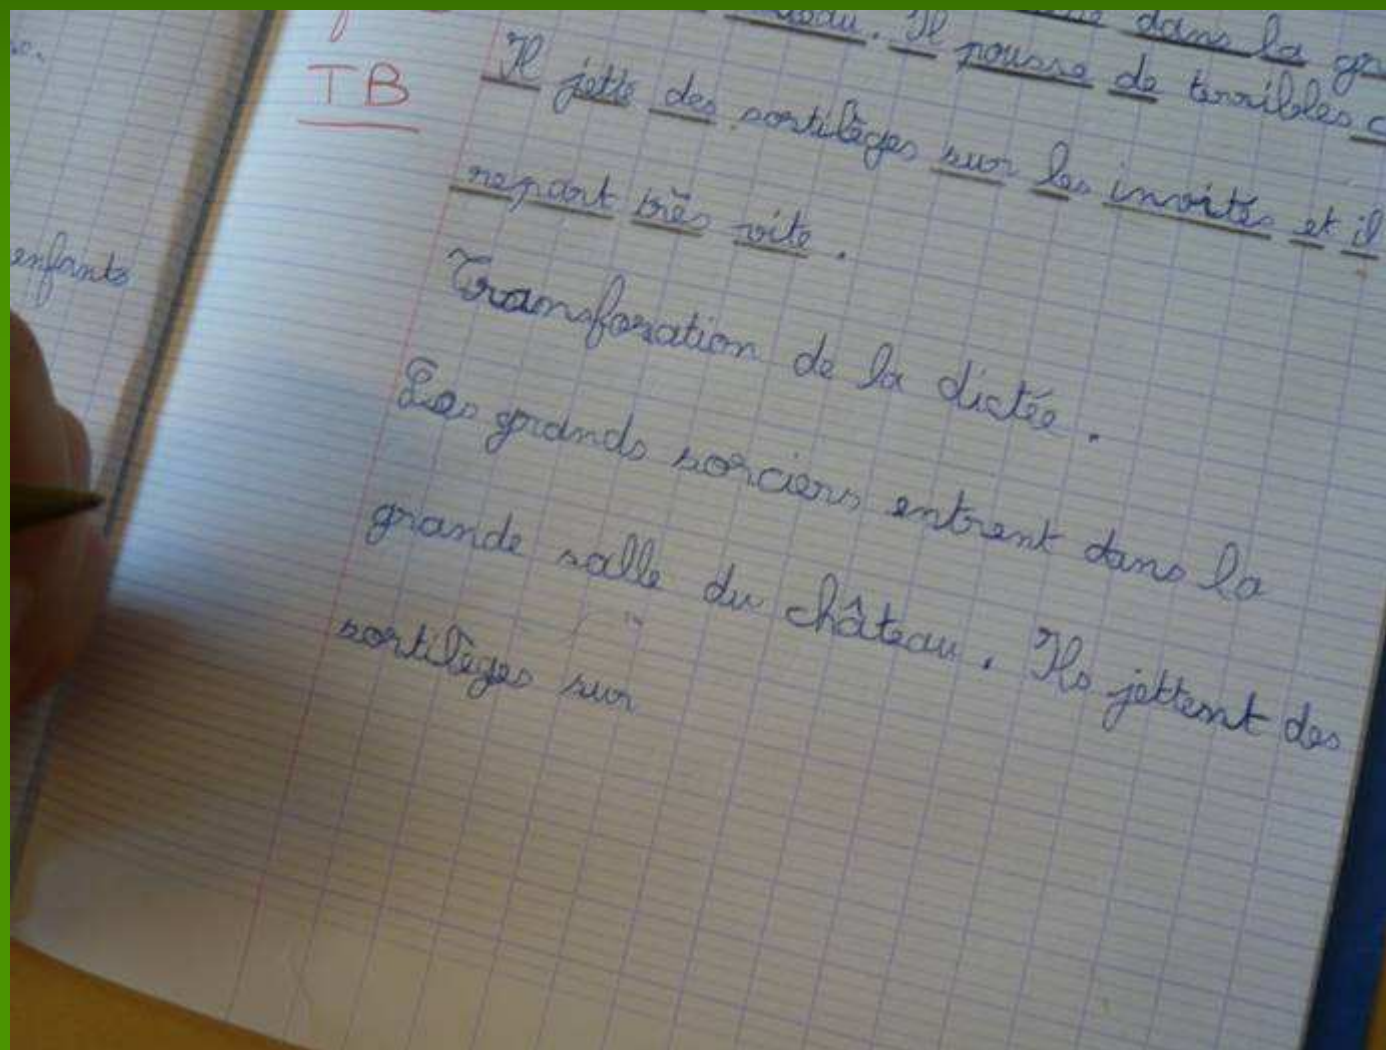 dans la
. Il pousse de terribles
TB
Il jette des sortilèges sur les invités et il
repart très vite.
enfants
Transforation de la dictée.
Les grands sorciers entrent dans la
grande salle du château. Ils jettent des
sortilèges sur